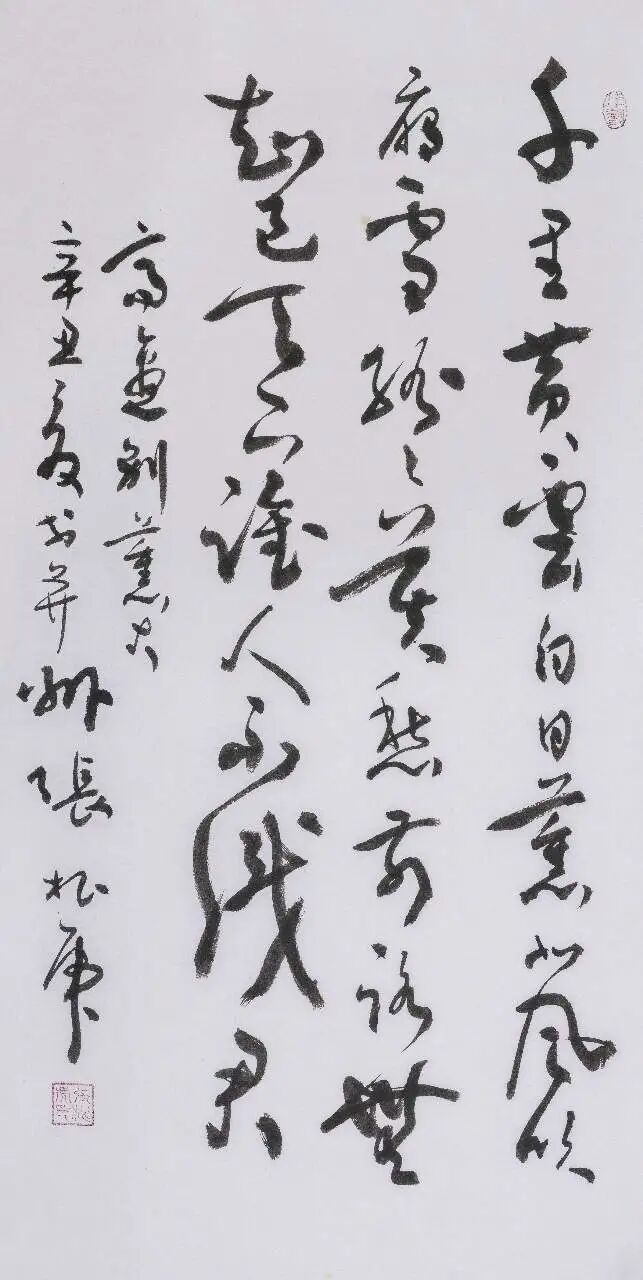 千里黄雲白日薰北風吹
雁雪紛々莫愁前路無
知己天下誰人不識君
高適别董大
辛丑夏书并州張松